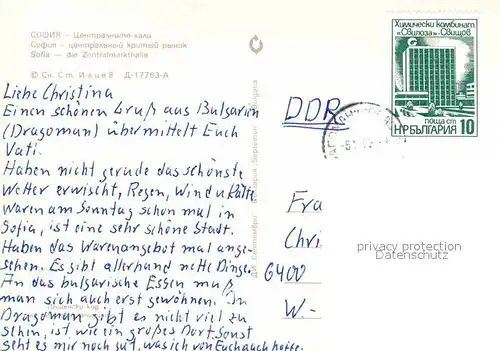 СОФИЯ – Централните хали
София – центральный крытый рынок
Sofia – die Zentralmarkthalle
© Сн. Ст. Илиев Д-17763-А
Liebe Christina
Einen schönen Gruß aus Bulgarien
(Dragoman) übermittelt Euch
Vati.
Haben nicht gerade das schönste
Wetter erwischt, Regen, Wind u Kälte
Waren am Sonntag schon mal in
Sofia, ist eine sehr schöne Stadt.
Haben das Warenangebot mal ange-
sehen. Es gibt allerhand nette Dinge.
An das bulgarische Essen muß
man sich auch erst gewöhnen. In
Dragoman gibt es nicht viel zu
sehen, ist wie ein großes Dorf. Sonst
geht es mir noch gut, was ich von Euch auch hoffe.
Пощенски код
ДИ „Септември“ България "Septemvri" Bulgaria
Химически комбинат
„Свилоза“-Свищов
поща ст
НР БЪЛГАРИЯ 10
DDR
Fra
Chri
6400
W.-
privacy protection
Datenschutz